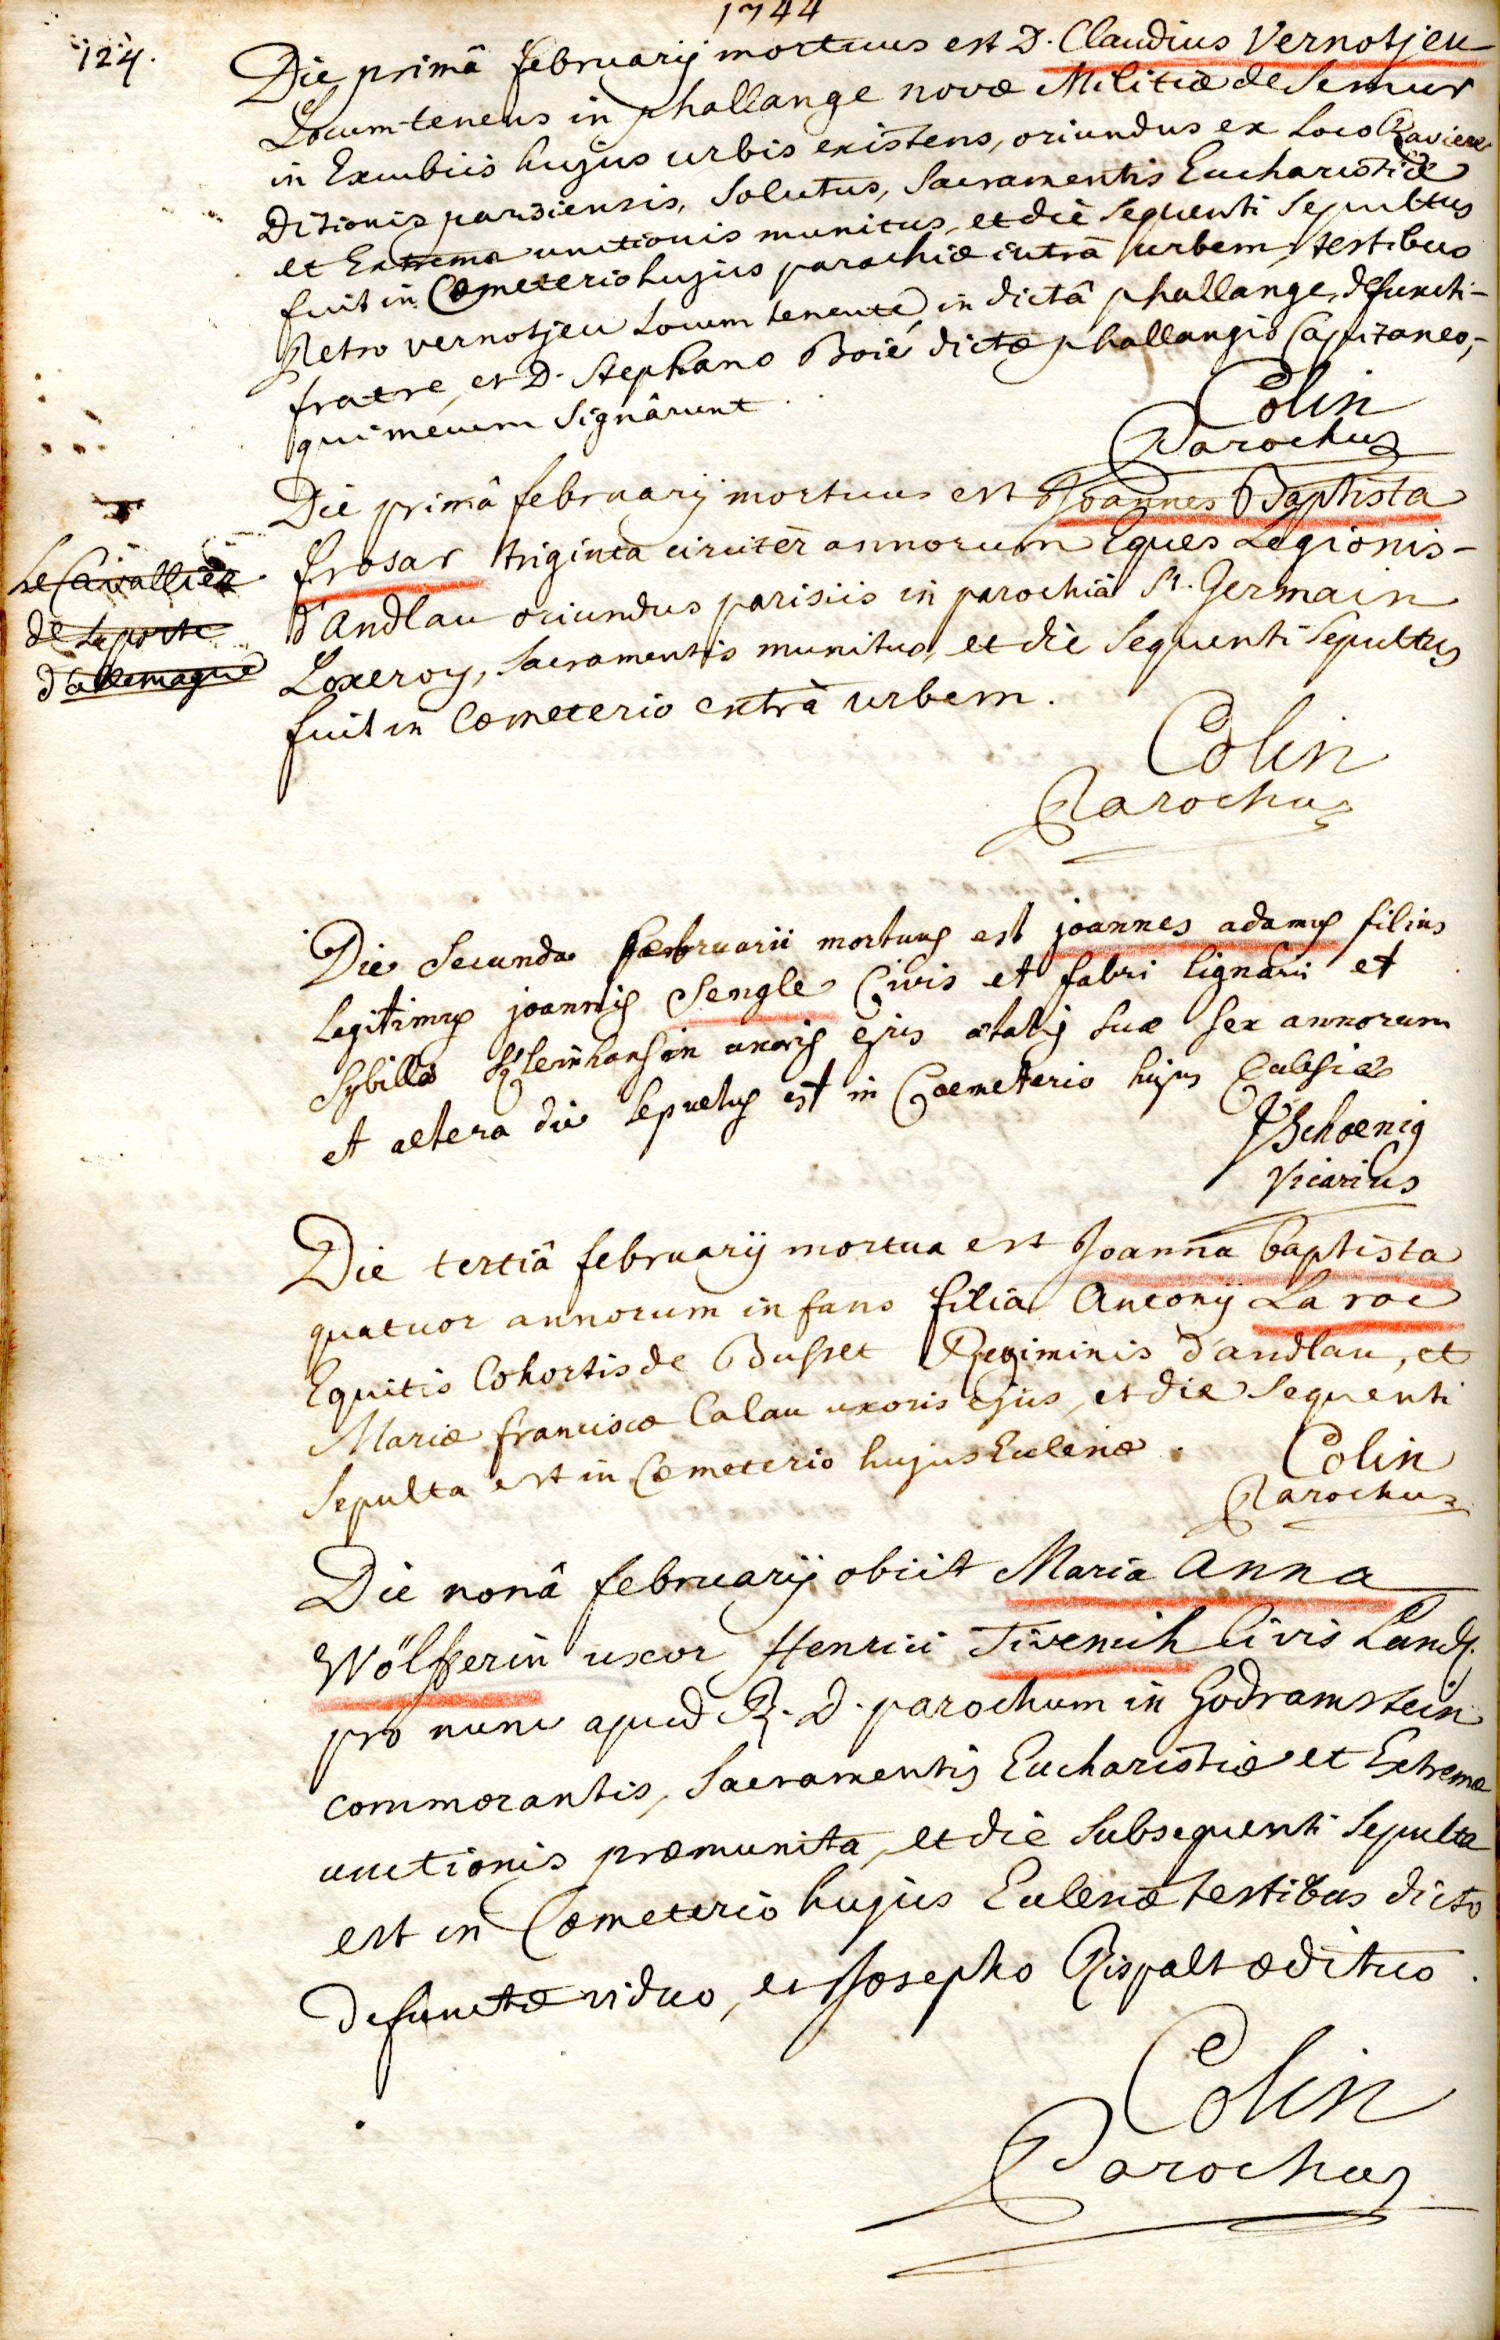 1744
124.
Die primâ februarij mortuus est D. Claudius Vernotjeu
Locum-tenens in phallange novæ Militiæ de Semur
in Excubiis hujus urbis existens, oriundus ex Loco Raviere
Ditionis parisiensis, solutus, Sacramentis Eucharistiæ
et Extremæ unctionis munitus, et die sequenti sepultus
fuit in Cœmeterio hujus parochiæ intrâ urbem, testibus
Petro vernotjeu Locum tenente in dictâ phallange, defuncti-
fratre, et D. Stephano Boié dictæ phallangis Capitaneo,-
qui mecum signârunt.
Colin
Parochus
Die primâ februarij mortuus est Joannes Baptista
frosar triginta circiter annorum Eques Legionis-
d'Andlau oriundus parisiis in parochiâ St. Germain
Loxeroy, sacramentis munitus, et die sequenti sepultus
fuit in Cœmeterio extrà urbem.
Le Cavallier
de la porte
d'allemagne
Colin
Parochus
Die Secunda februarii mortuus est joannes adamus filius
legitimus joannis Sengle Civis et fabri lignarii et
Sybillæ Kleinhansin uxoris ejus ætatis suæ sex annorum
et altera die sepultus est in Coemeterio hujus Ecclesiæ
Schoenig
Vicarius
Die tertiâ februarij mortua est Joanna baptista
quatuor annorum infans filia Antonij La roc
Equitis Cohortis de Busset Regiminis d'andlau, et
Mariæ franciscæ Calau uxoris ejus, et die sequenti
sepulta est in Cœmeterio hujus Ecclesiæ.
Colin
Parochus
Die nonâ februarij obiit Maria Anna
Wölfferin uxor Henrici Tivenich Civis Land.
pro nunc apud R. D. parochum in Godramstein
commorantis, Sacramentis Eucharistiæ et Extremæ
unctionis præmunita, et die subsequenti sepulta
est in Cœmeterio hujus Ecclesiæ testibus dicto
defunctæ viduo, et Josepho Rispalt ædituo.
Colin
Parochus